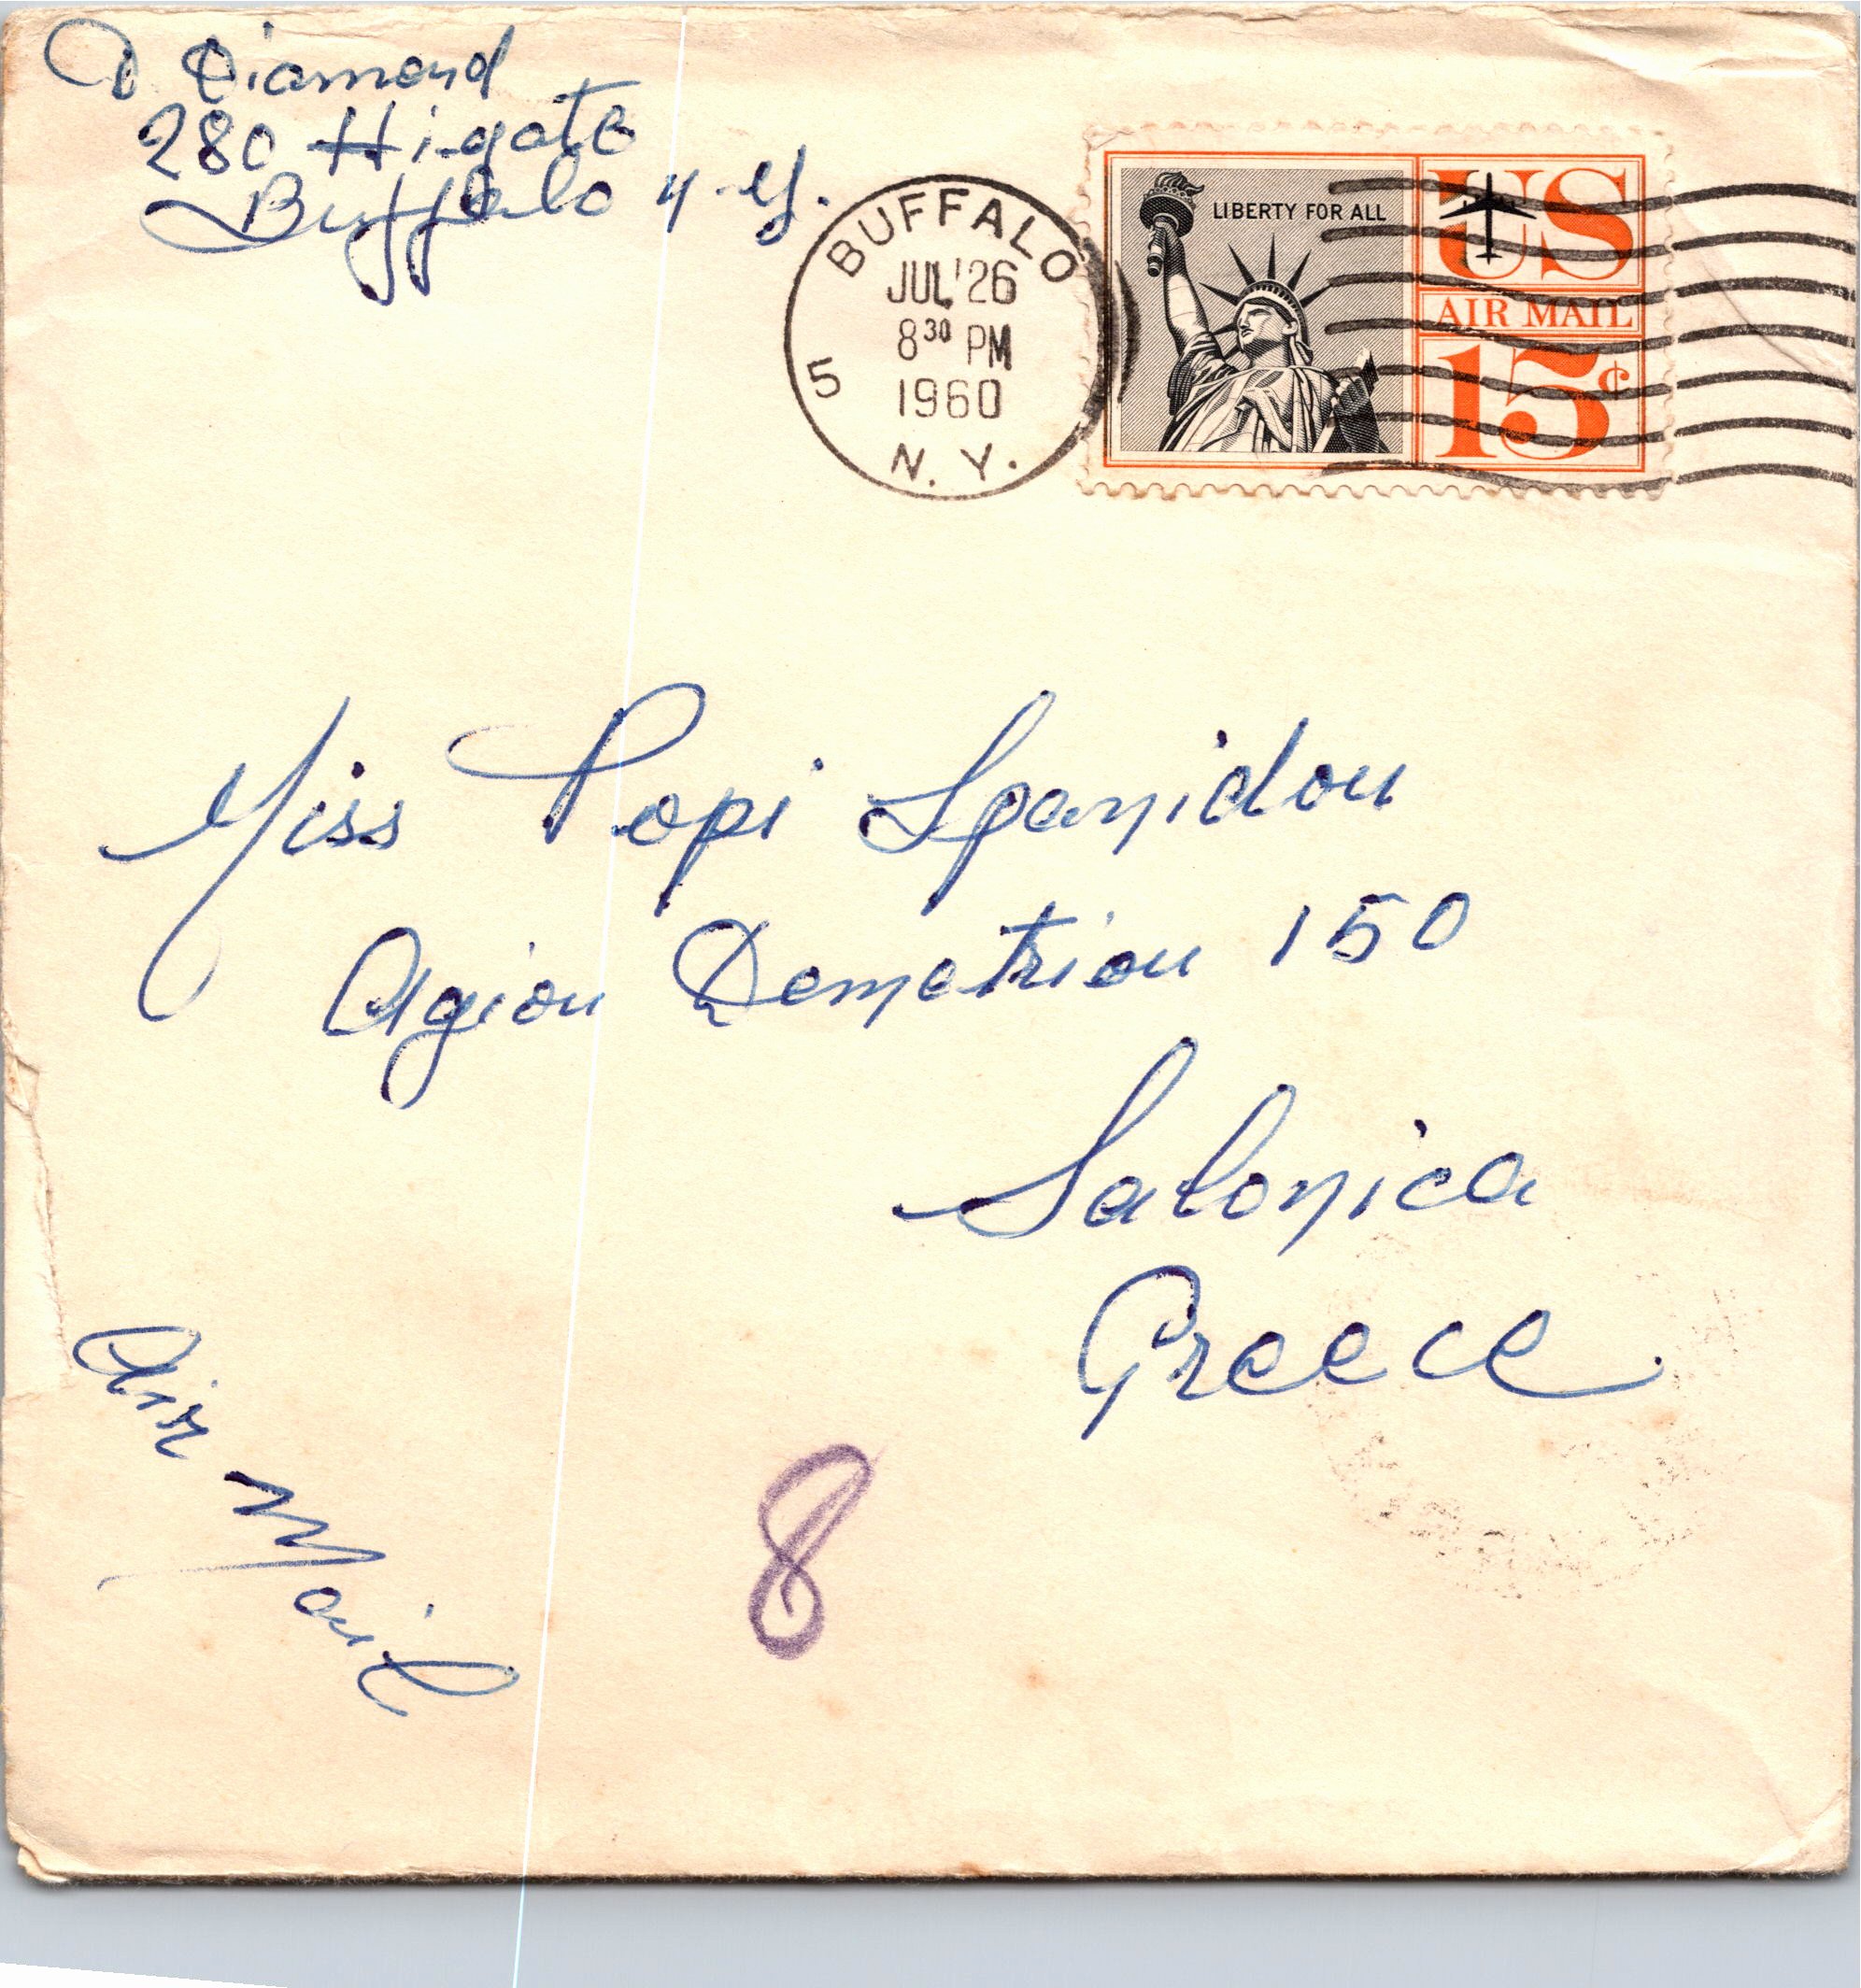 D Diamond
280 Higate
Buffalo N.Y.
BUFFALO
JUL 26
8 30 PM
1960
5
N. Y.
LIBERTY FOR ALL
US
AIR MAIL
15¢
Miss Popi Spanidou
Agiou Demetriou 150
Salonica
Greece.
Air Mail
8